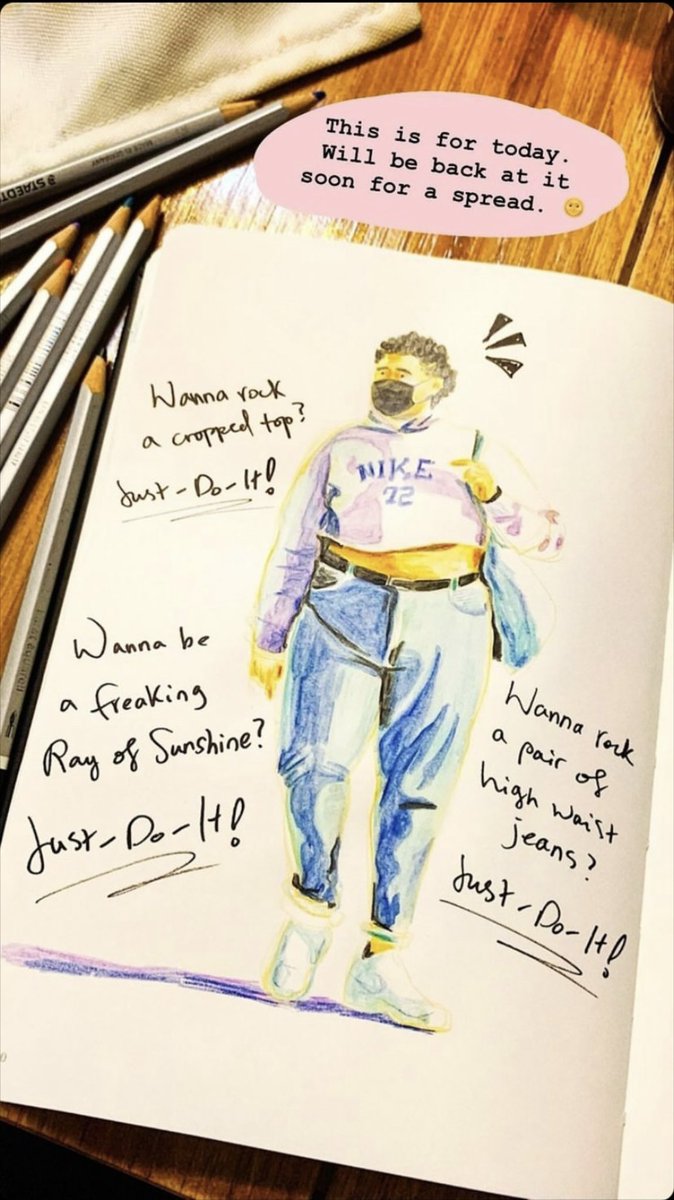 This is for today.
Will be back at it
soon for a spread.
STAEDT
Wanna rock
a cropped top?
Just-Do-It!
NIKE
72
Wanna be
a freaking
Ray of Sunshine?
Just-Do-It!
Wanna rock
a pair of
high waist
jeans?
Just-Do-It!